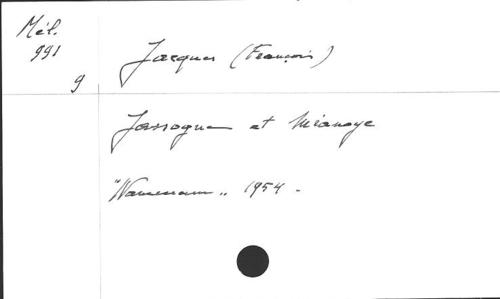 Mél.
991
9
Jacques (François)
Jassogne et Mianoye
"Namurcum" 1954 -